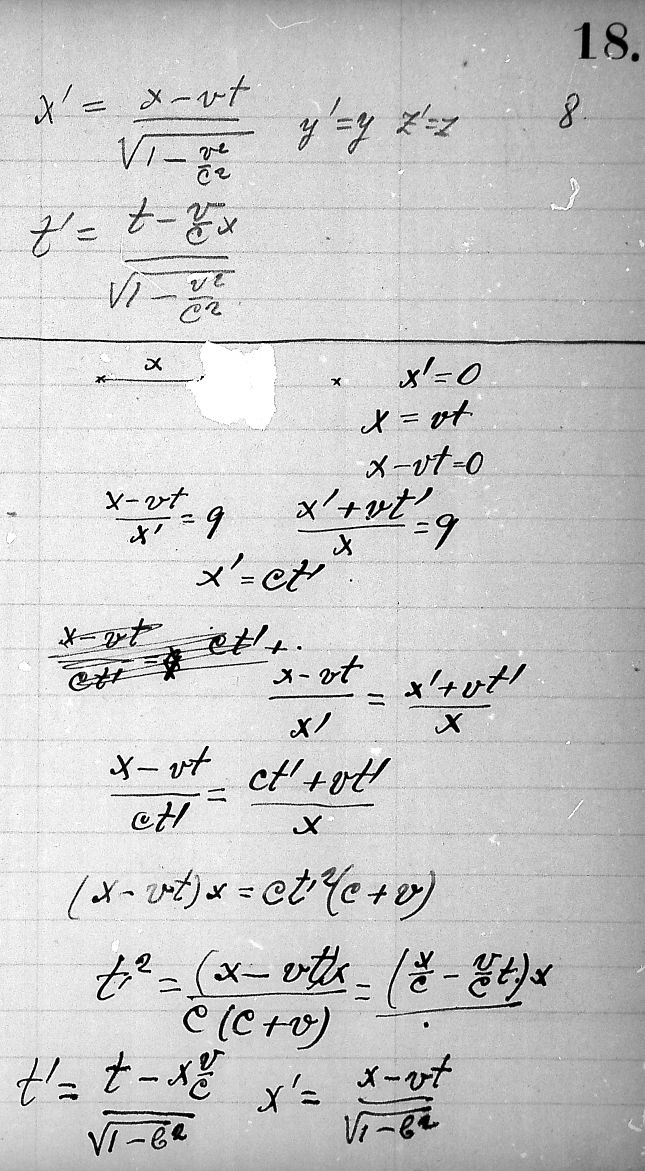 18.
x' = (x - vt) / √(1 - v²/c²)   y' = y   z' = z   8
t' = (t - v/c x) / √(1 - v²/c²)
x   x' = 0
x = vt
x - vt = 0
(x - vt) / x' = q   (x' + vt') / x = q
x' = ct'
(x - vt) / x' = (x' + vt') / x
(x - vt) / ct' = (ct' + vt') / x
(x - vt) x = ct'²(c + v)
t'² = (x - vt)x / c(c + v) = (x/c - v/c t) x
t' = (t - x v/c) / √(1 - β²)   x' = (x - vt) / √(1 - β²)